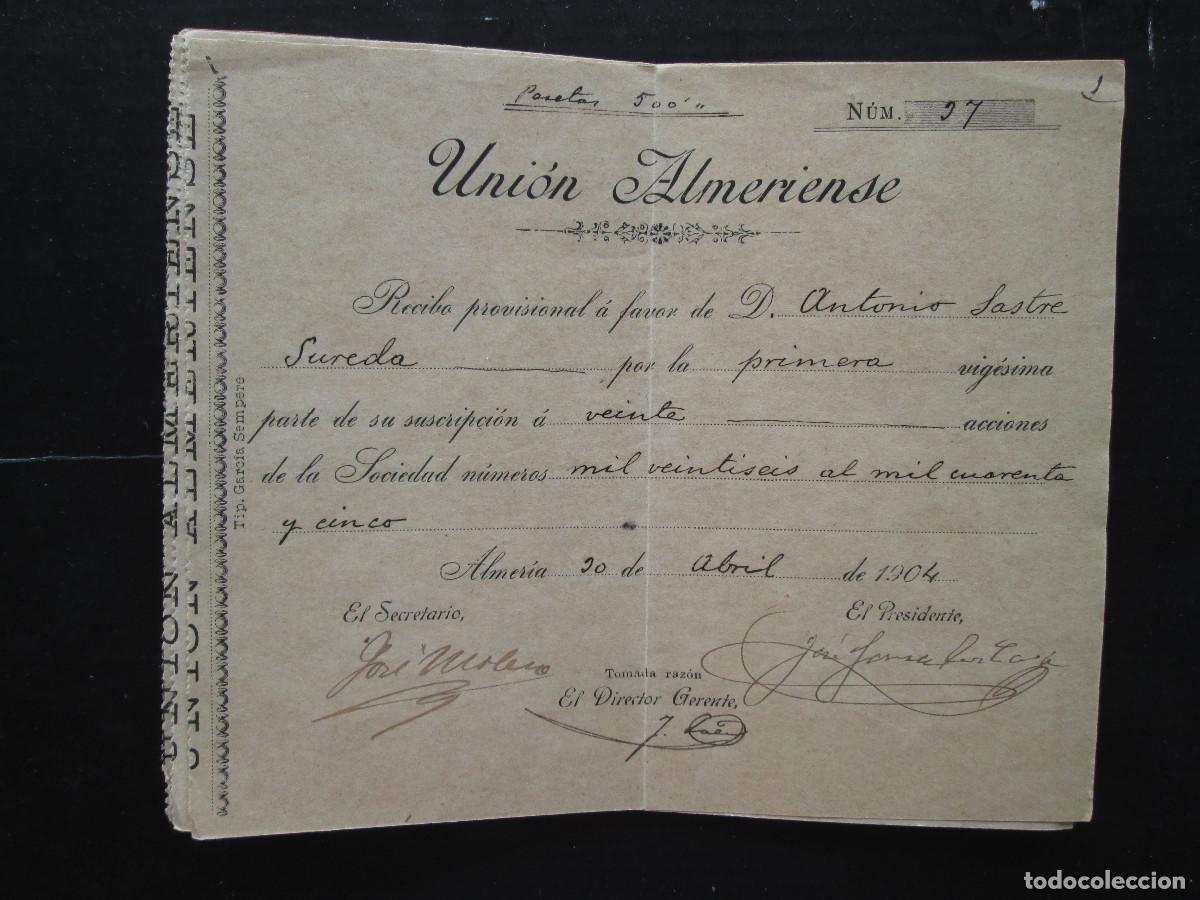 Pesetas 500'"
NÚM. 37
1
Unión Almeriense
Recibo provisional á favor de D. Antonio Sastre
Sureda por la primera vigésima
parte de su suscripción á veinte acciones
de la Sociedad números mil veintiseis al mil cuarenta
y cinco
Almería 30 de Abril de 1904
El Secretario,
El Presidente,
José Molero
José
Tomada razón
El Director Gerente,
J.
Tip. García Sempere
UNION ALMERIENSE
todocoleccion